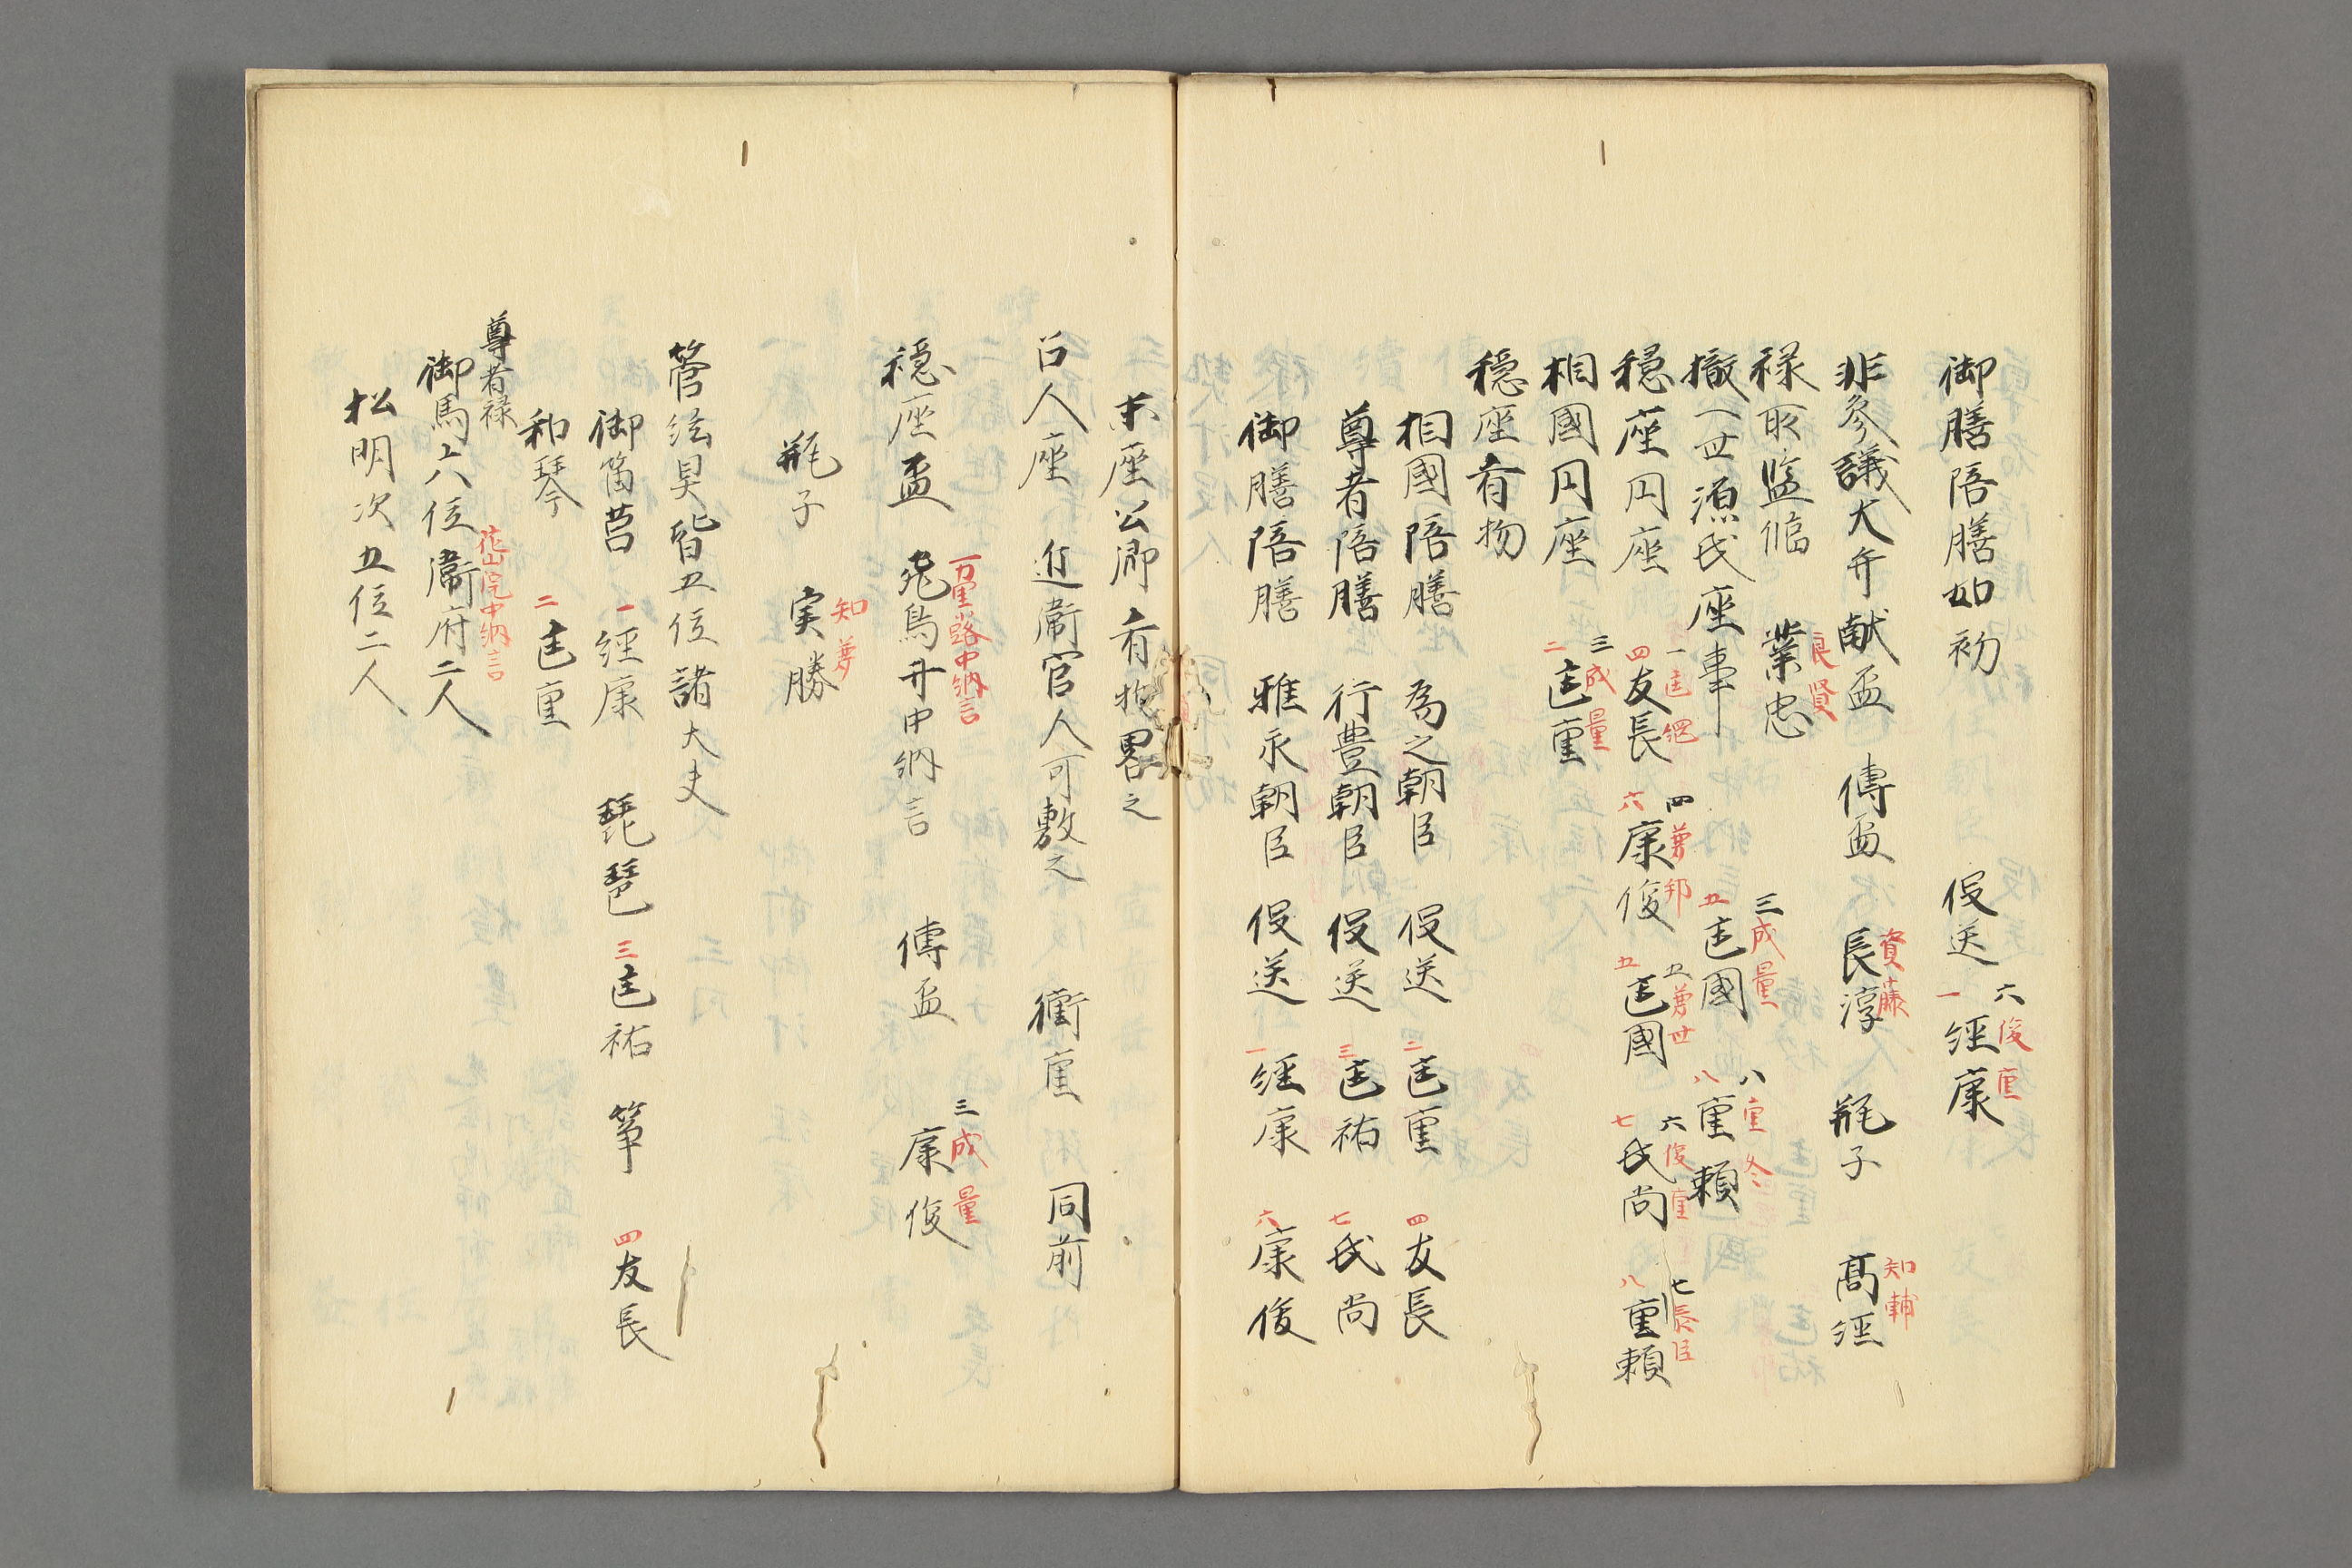 御膳陪膳如初　役送　一経康　六俊重
非参議大弁献盃　傳盃　長淳　資藤　瓶子　髙経　知輔
禄取監臨　業忠　良賢
撤一世源氏座事　五匡國　三成量　八重頼　八重冬
穏座円座　四友長　一匡綱　六康俊　四兼邦　五匡國　五兼世　七氏尚　六俊重　八重頼　七長
相國円座　二匡重　三成量
穏座肴物
相國陪膳　為之朝臣　役送　二匡重　四友長
尊者陪膳　行豊朝臣　役送　三匡祐　七氏尚
御膳陪膳　雅永朝臣　役送　一経康　六康俊
末座公卿肴物畧之
召人座　近衞官人可敷之　衞重　同前
穏座盃　飛鳥井中納言　万里小路中納言　傳盃　康俊　三成量
瓶子　実勝　知兼
管絃具皆五位諸大夫
御笛筥　一経康　琵琶　三匡祐　筝　四友長
和琴　二匡重
尊者禄　花山院中納言
御馬六位衞府二人
松明次五位二人